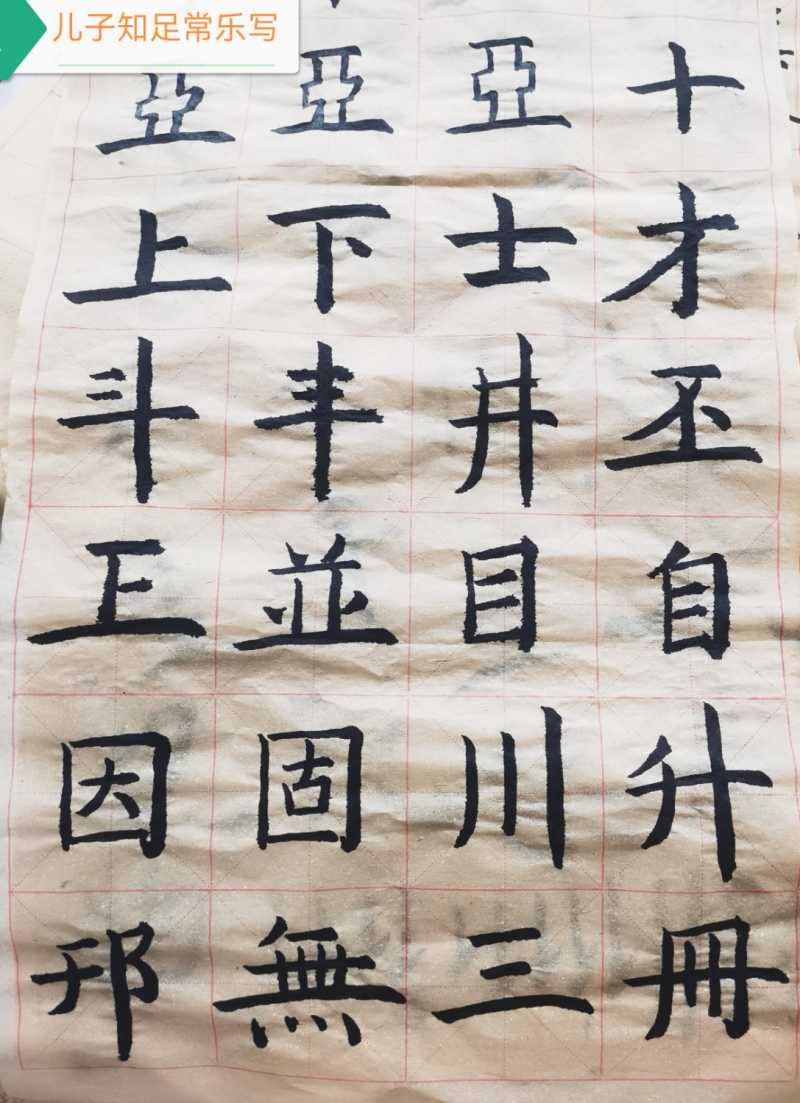 儿子知足常乐写
亞亞亞十
上下士才
斗丰井丕
正並目自
因固川升
無三冊